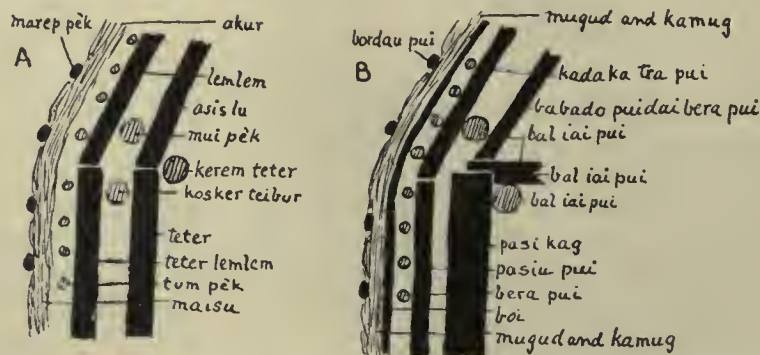 marep pèk
akur
A
lemlem
asis lu
mui pèk
kerem teter
kosker teibur
teter
teter lemlem
tum pèk
maisu
mugud and kamug
bordau pui
B
kadaka tra pui
babado puidai bera pui
bal iai pui
bal iai pui
bal iai pui
pasi kag
pasiu pui
bera pui
boi
mugud and kamug